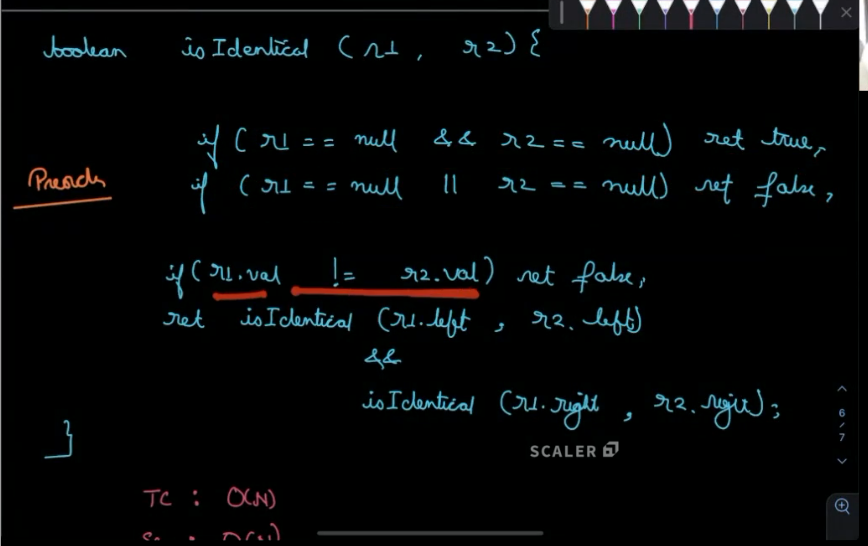 boolean isIdentical (r1, r2) {
if (r1 == null && r2 == null) ret true,
if (r1 == null || r2 == null) ret false,
if (r1.val != r2.val) ret false,
ret isIdentical (r1.left , r2.left)
&&
isIdentical (r1.right , r2.right);
SCALER
6
/
7
}
TC : O(N)